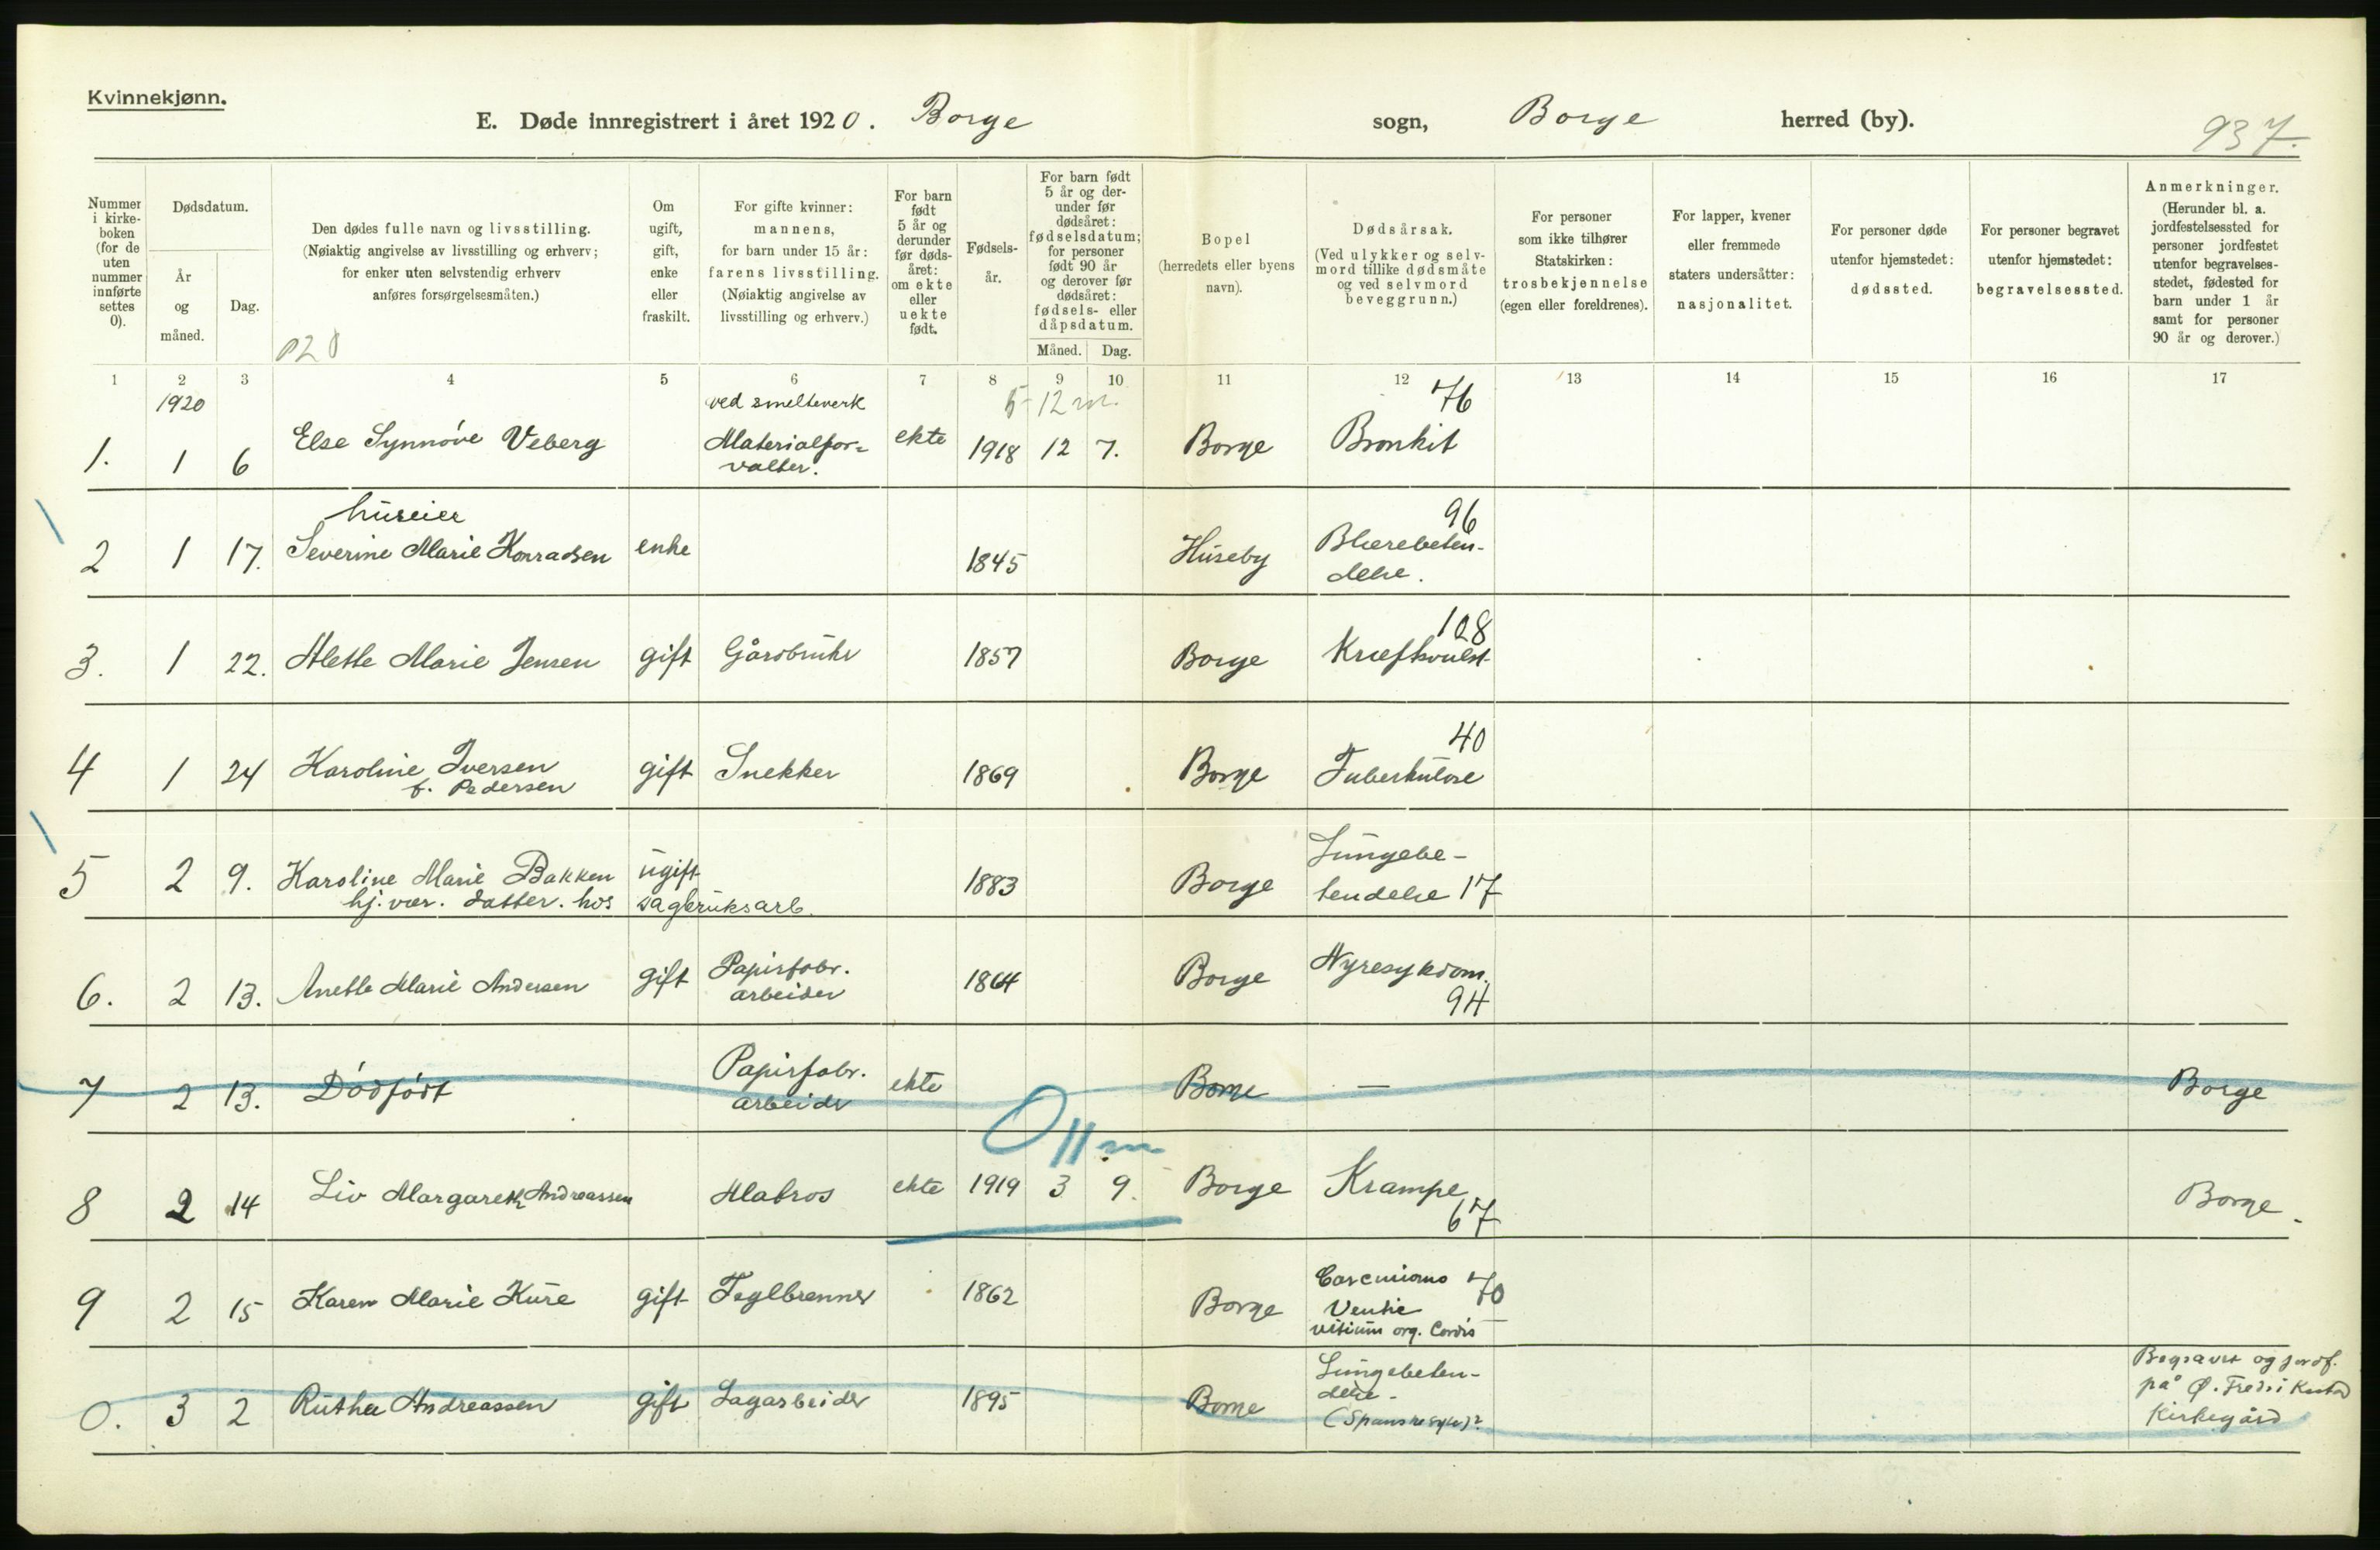 Kvinnekjønn.
E. Døde innregistrert i året 1920. Borge sogn, Borge herred (by).
937.
Nummer i kirke- boken (for de uten nummer innførte settes 0).
Dødsdatum.
År og måned.
Dag.
Den dødes fulle navn og livsstilling.
(Nøiaktig angivelse av livsstilling og erhverv;
for enker uten selvstendig erhverv
anføres forsørgelsesmåten.)
Om ugift, gift, enke eller fraskilt.
For gifte kvinner:
mannens,
for barn under 15 år:
farens livsstilling.
(Nøiaktig angivelse av
livsstilling og erhverv.)
For barn født 5 år og derunder før døds- året: om ekte eller uekte født.
Fødsels- år.
For barn født 5 år og der- under før dødsåret: fødselsdatum; for personer født 90 år og derover før dødsåret: fødsels- eller dåpsdatum.
Måned. Dag.
Bopel
(herredets eller byens
navn).
Dødsårsak.
(Ved ulykker og selv-
mord tillike dødsmåte
og ved selvmord
beveggrunn.)
For personer
som ikke tilhører
Statskirken:
trosbekjennelse
(egen eller foreldrenes).
For lapper, kvener
eller fremmede
staters undersåtter:
nasjonalitet.
For personer døde
utenfor hjemstedet:
dødssted.
For personer begravet
utenfor hjemstedet:
begravelsessted.
Anmerkninger.
(Herunder bl. a.
jordfestelsessted for
personer jordfestet
utenfor begravelses-
stedet, fødested for
barn under 1 år
samt for personer
90 år og derover.)
1 2 3 4 5 6 7 8 9 10 11 12 13 14 15 16 17
1920 ved smelteverk 12 m. 76
1. 1 6 Else Synnöve Veberg Materialfor= ekte 1918 12 7. Borge Bronkit
valter.
huseier 96
2 1 17. Severine Marie Konradsen enke 1845 Huseby Blærebeten-
delse.
108
3. 1 22. Alette Marie Jensen gift Gårdbruker 1857 Borge Kræftsvulst
40
4 1 24 Karoline Iversen gift Snekker 1869 Borge Tuberkulose
f. Pedersen
5 2 9. Karoline Marie Bakken ugift 1883 Borge Lungebe-
tendelse 17
hj. vær. datter. hos sagbruksarb.
6. 2 13. Anette Marie Andersen gift Papirfabr. 1864 Borge Nyresykdom.
arbeider 94
7 2 13. Dödfödt Papirfabr. ekte Borge — Borge
arbeider
0 11 m
8 2 14 Liv Margarete Andreassen Matros ekte 1919 3 9. Borge Krampe Borge.
67
9 2 15 Karen Marie Kure gift Teglbrenner 1862 Borge Carcinoma 70
vitium org. Cordis
0. 3 2 Ruthea Andreassen gift Sagarbeider 1895 Borge Lungebeten-
delse -
(Spanske syke)?
Begravet og jordf.
på Ø. Fredrikstad
Kirkegård